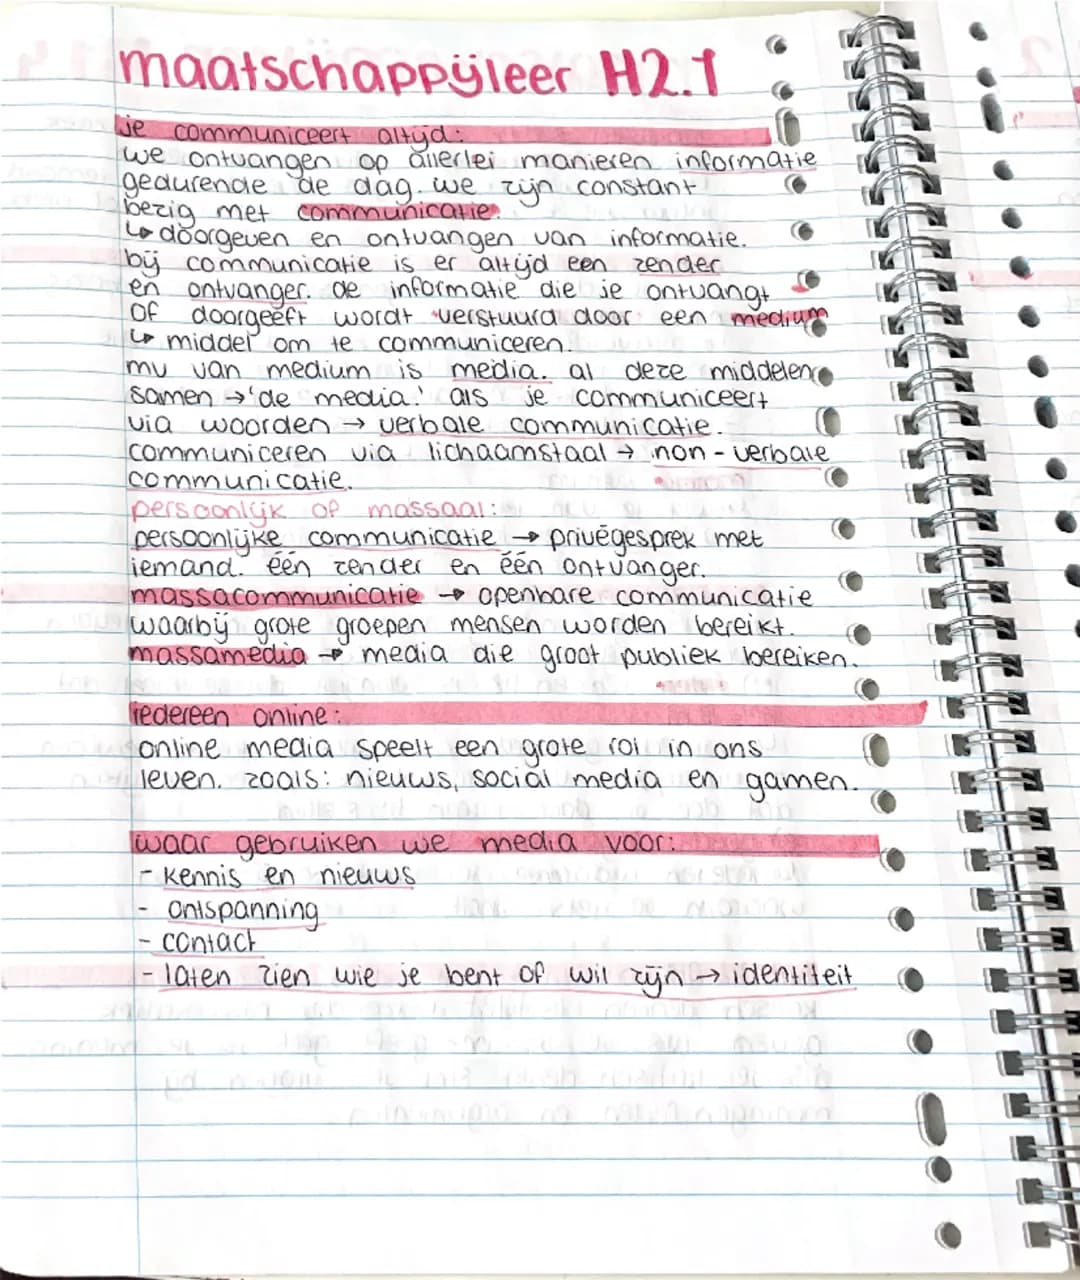 maatschappijleer H2.1
je communiceert altijd:
we ontvangen op allerlei manieren informatie
gedurende de dag. we zijn constant
bezig met communicatie.
↳ doorgeven en ontvangen van informatie.
bij communicatie is er altijd een zender
en ontvanger. de informatie die je ontvangt
of doorgeeft wordt verstuurd door een medium
↳ middel om te communiceren.
mv van medium is media. al deze middelen
samen → 'de media.' als je communiceert
via woorden → verbale communicatie.
communiceren via lichaamstaal → non-verbale
communicatie.
persoonlijk of massaal:
persoonlijke communicatie → privégesprek met
iemand. één zender en één ontvanger.
massacommunicatie → openbare communicatie
waarbij grote groepen mensen worden bereikt.
massamedia → media die groot publiek bereiken.
iedereen online:
online media speelt een grote rol in ons
leven. zoals: nieuws, social media en gamen.
waar gebruiken we media voor:
- kennis en nieuws
- ontspanning
- contact
- laten zien wie je bent of wil zijn → identiteit